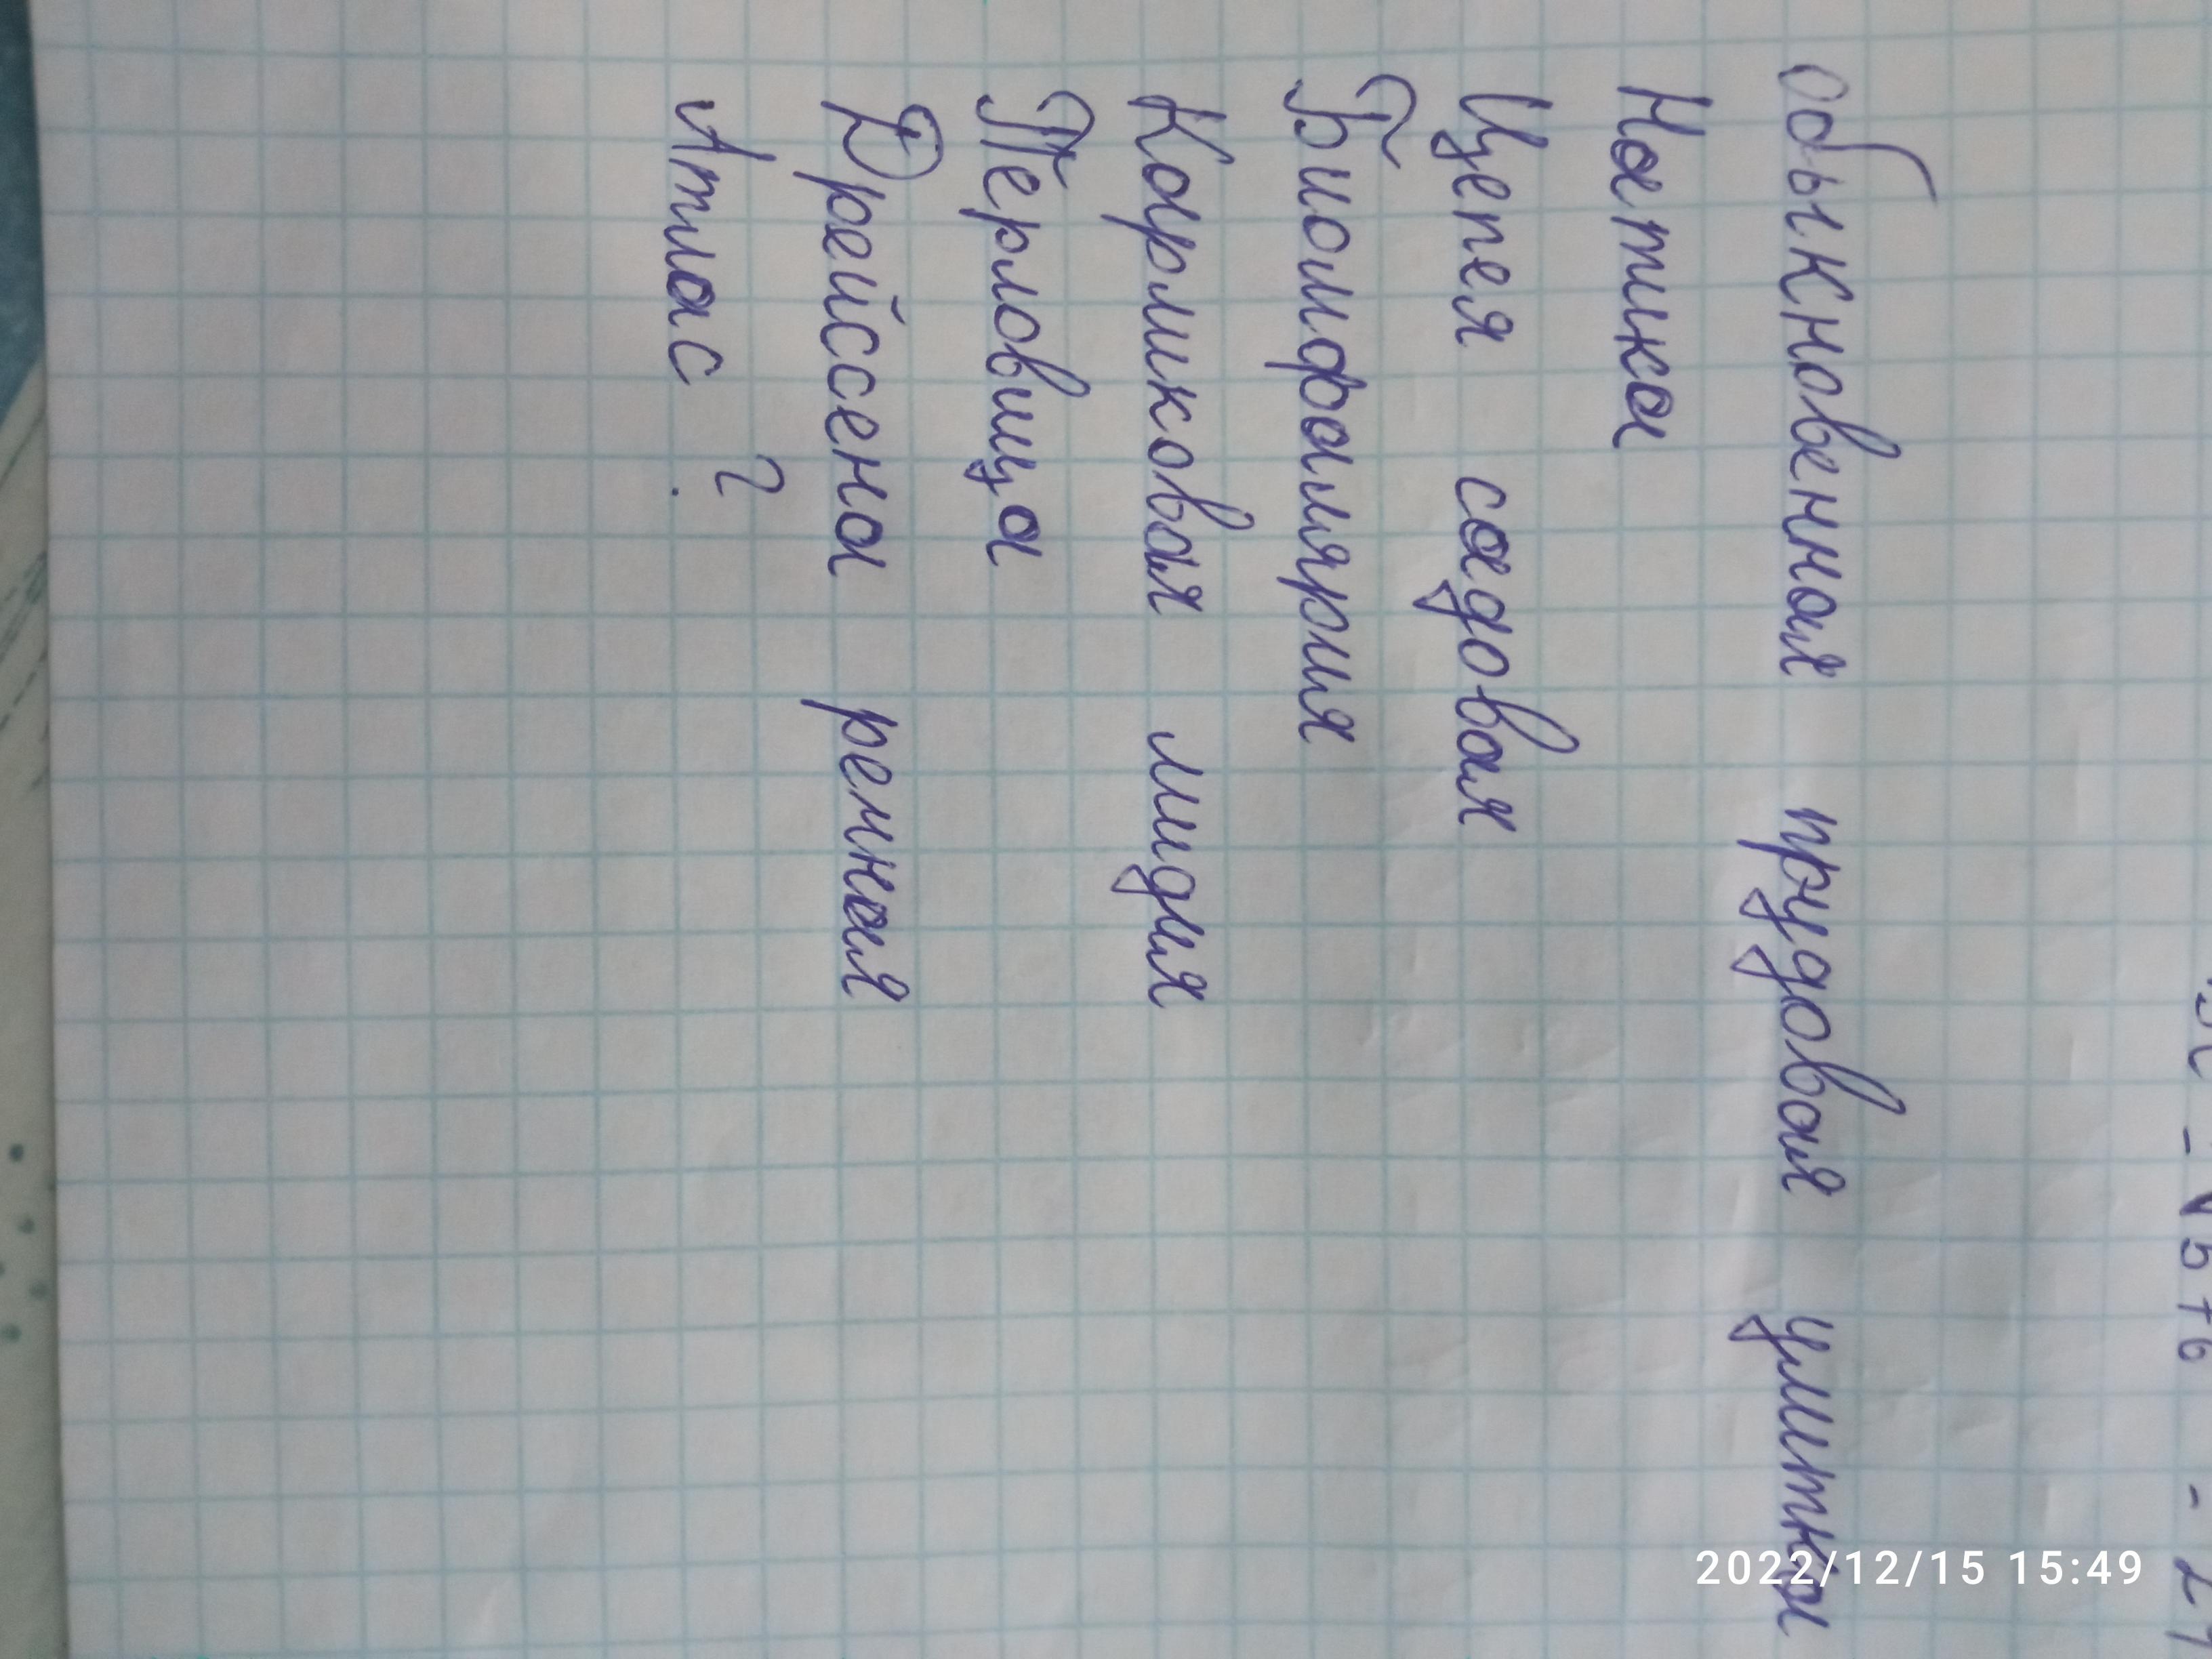 Обыкновенная прудовая улитка
Натика
Цепея садовая
Биомфалярия
Карликовая мидия
Перловица
Дрейссена речная
Атлас ?
2022/12/15 15:49